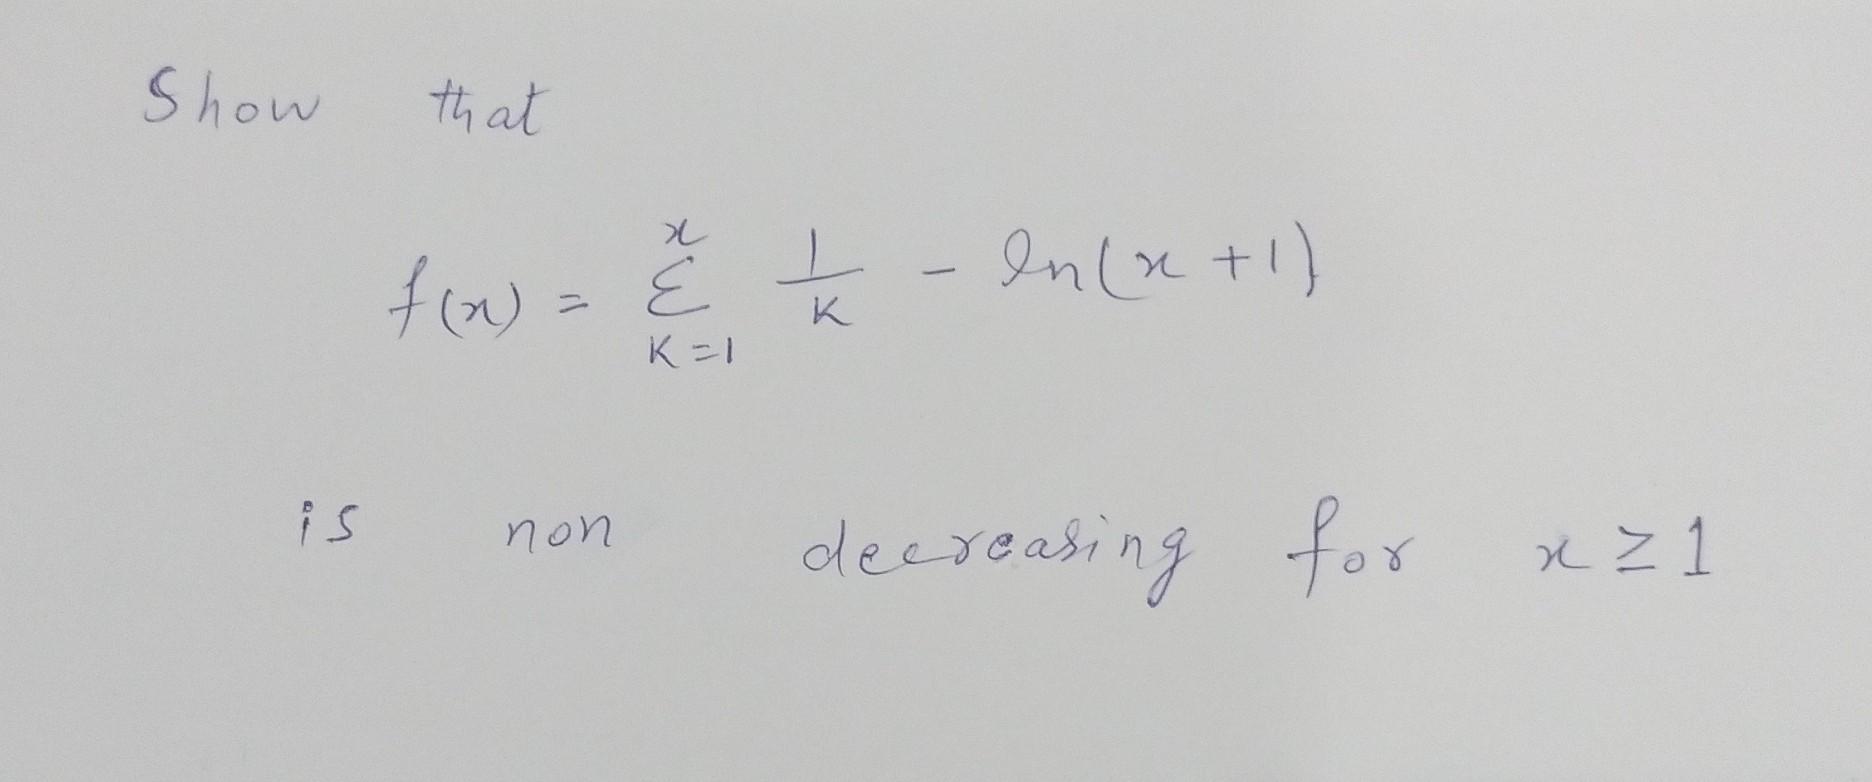 Show that
f(x) = x Σ K=1 1/K - ln(x+1)
is non decreasing for x ≥ 1